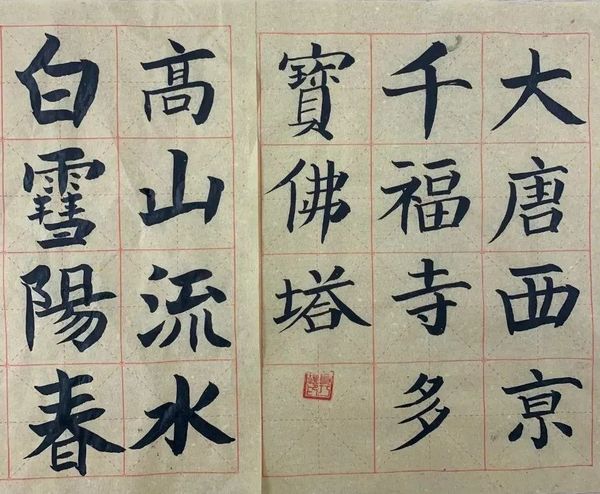 大唐西亰
千福寺多
寶佛塔
高山流水
白雪陽春